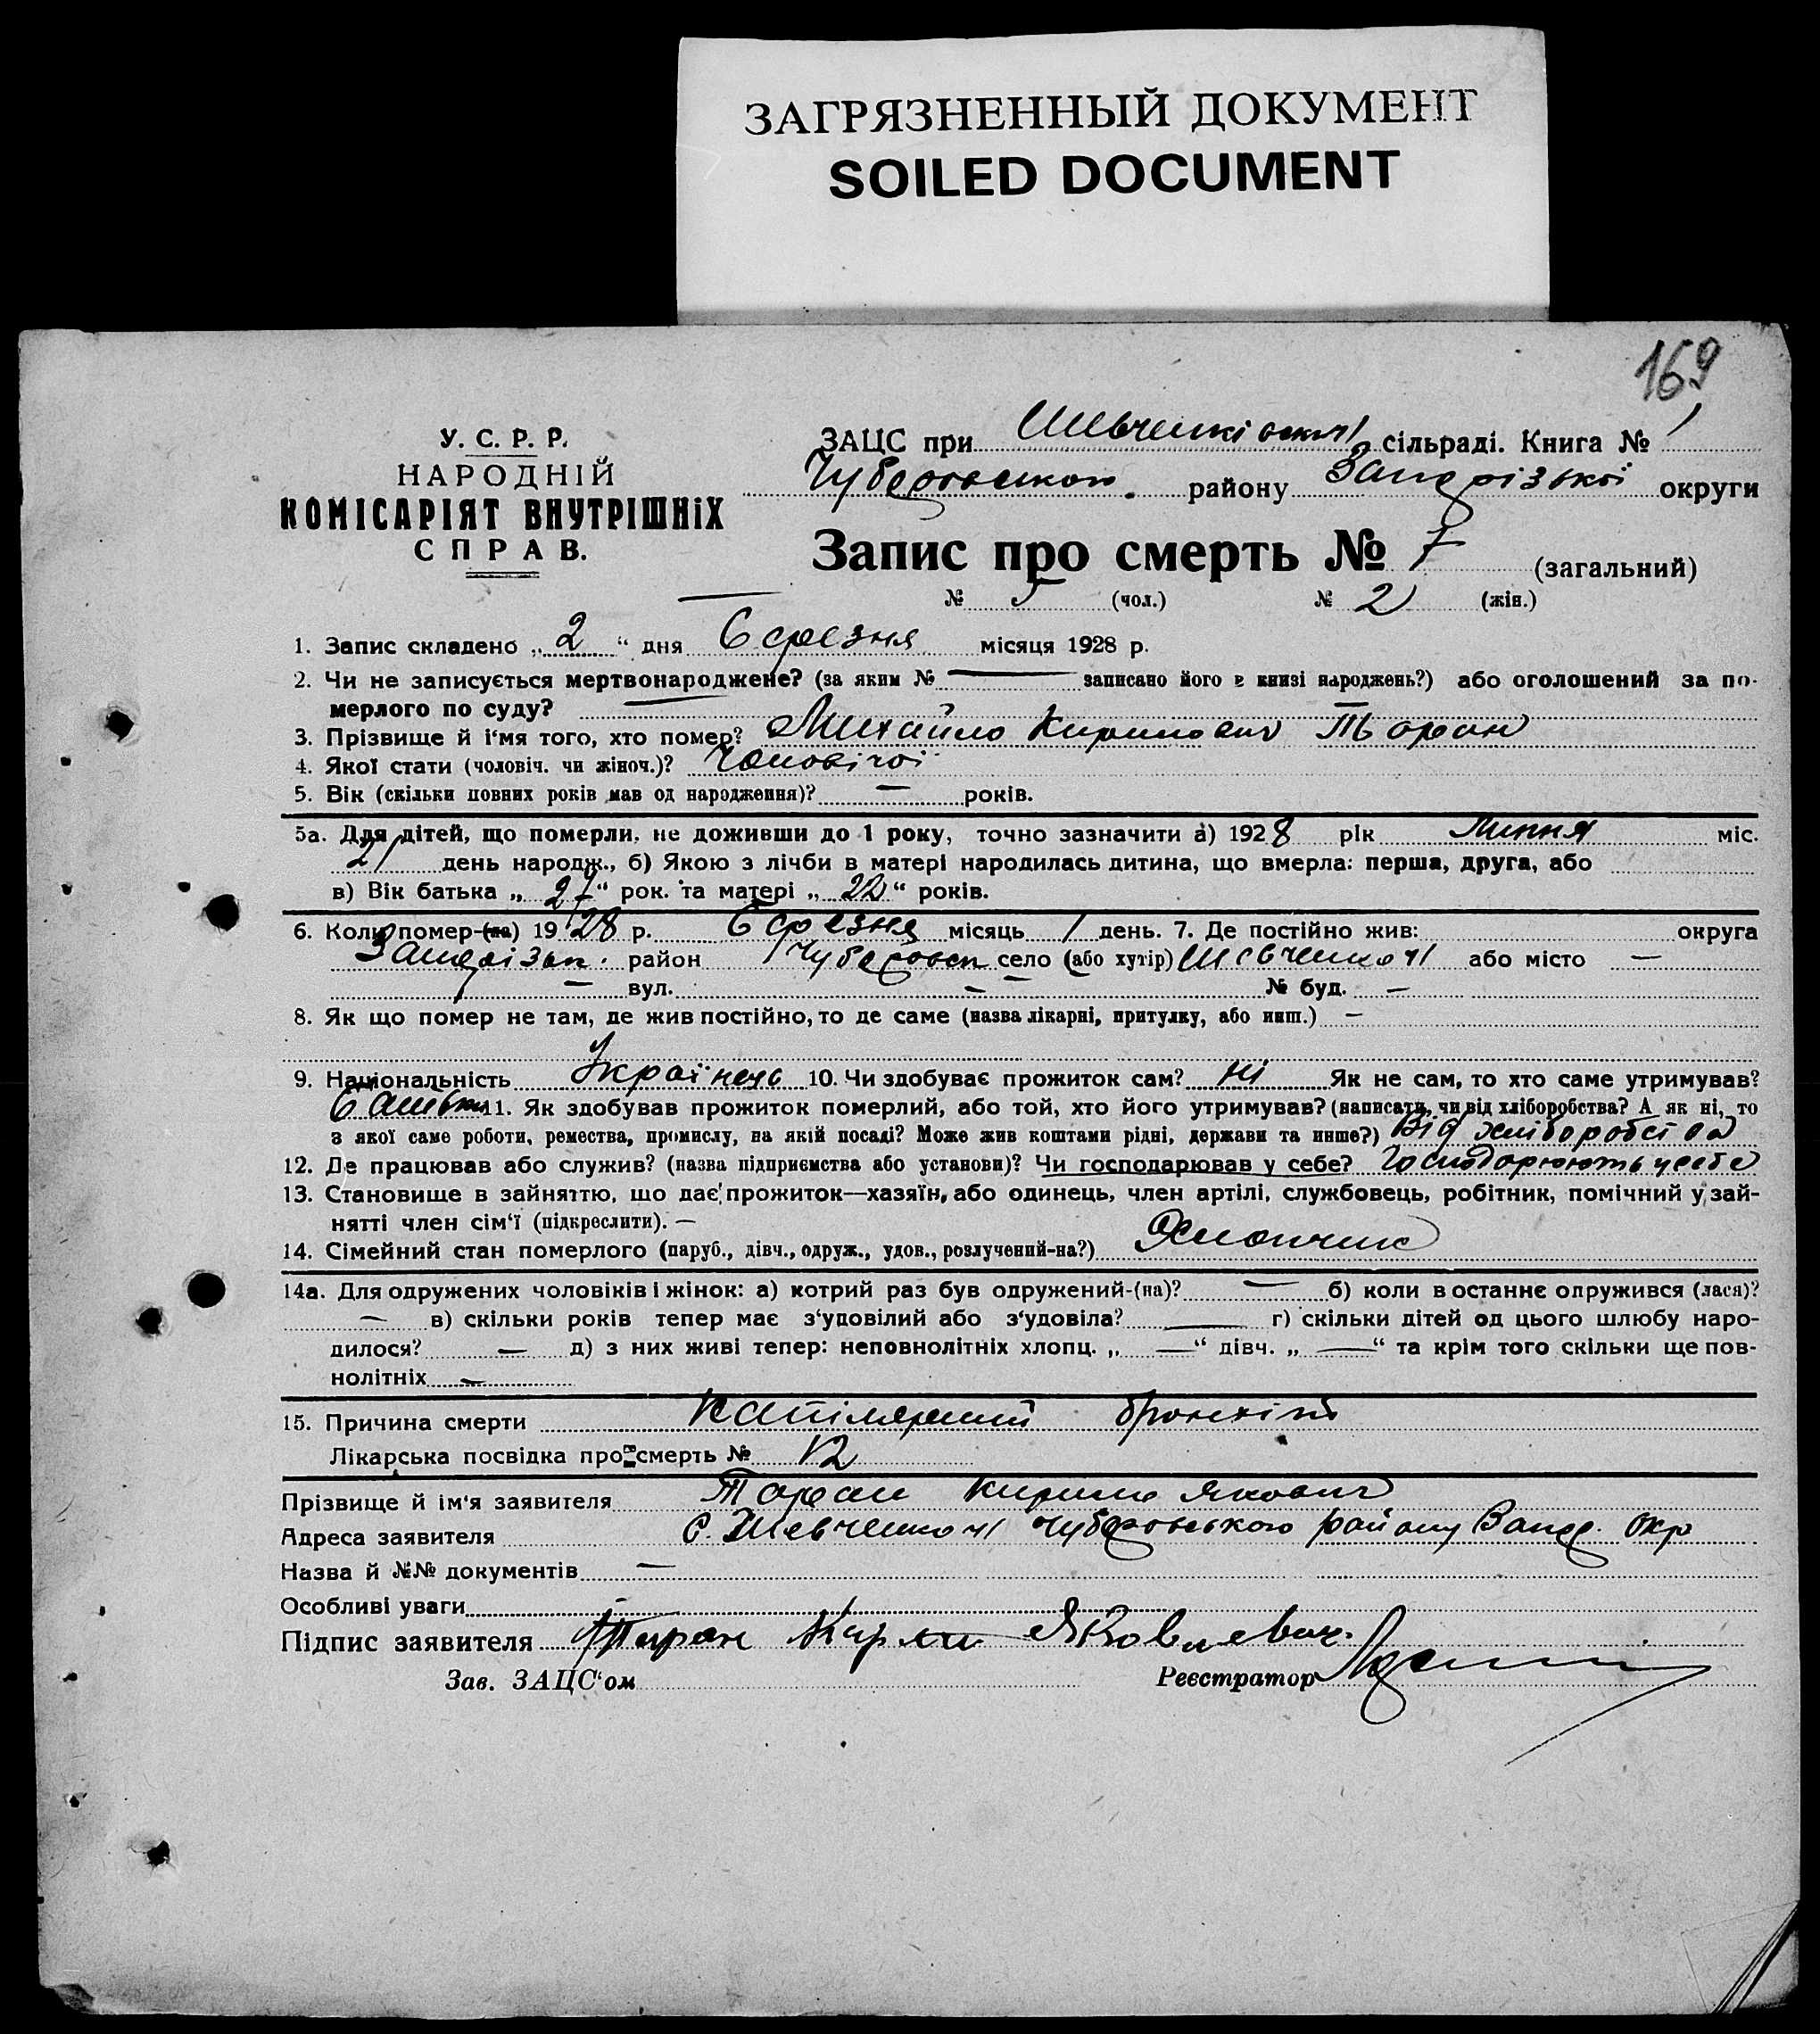 ЗАГРЯЗНЕННЫЙ ДОКУМЕНТ
SOILED DOCUMENT
169
У. С. Р. Р.
НАРОДНІЙ
КОМІСАРІЯТ ВНУТРІШНіХ
СПРАВ.
ЗАЦС при сільраді. Книга № 1
району округи
Запис про смерть № 7 (загальний)
№ 5 (чол.) № 2 (жін.)
1. Запис складено „ 2 “ дня березня місяця 1928 р.
2. Чи не записується мертвонароджене? (за яким № — записано його в книзі народжень?) або оголошений за по-
мерлого по суду? —
3. Прізвище й і‘мя того, хто помер? Михайло Кирилович Таран
4. Якої стати (чоловіч. чи жіноч.)? Чоловічої
5. Вік (скільки повних років мав од народження)? — років.
5а. Для дітей, що померли, не доживши до 1 року, точно зазначити а) 1928 рік Липня міс.
21 день народж., б) Якою з лічби в матері народилась дитина, що вмерла: перша, друга, або
в) Вік батька „ 27 “ рок. та матері „ 22 “ років.
6. Коли помер-(ла) 1928 р. березня місяць 1 день. 7. Де постійно жив: округа
район село (або хутір) або місто —
— вул. — № буд. —
8. Як що помер не там, де жив постійно, то де саме (назва лікарні, притулку, або инш.) —
9. Національність Українець 10. Чи здобуває прожиток сам? ні Як не сам, то хто саме утримував?
батько 11. Як здобував прожиток померлий, або той, хто його утримував? (написати, чи від хліборобства? А як ні, то
з якої саме роботи, ремества, промислу, на якій посаді? Може жив коштами рідні, держави та инше?) Від хліборобства
12. Де працював або служив? (назва підприємства або установи)? Чи господарював у себе? Господарюють у себе
13. Становище в зайняттю, що дає прожиток—хазяїн, або одинець, член артілі, службовець, робітник, помічний у зай-
нятті член сім‘ї (підкреслити). —
14. Сімейний стан померлого (паруб., дівч., одруж., удов., розлучений-на?) Хлопчик
14а. Для одружених чоловіків і жінок: а) котрий раз був одружений-(на)? — б) коли в останнє одружився (лася)?
— в) скільки років тепер має з‘удовілий або з‘удовіла? — г) скільки дітей од цього шлюбу наро-
дилося? — д) з них живі тепер: неповнолітніх хлопц. „ — “ дівч. „ — “ та крім того скільки ще пов-
нолітніх —
15. Причина смерти Капілярний бронхіт
Лікарська посвідка про смерть № 12
Прізвище й ім‘я заявителя Таран Кирило Якович
Адреса заявителя району Окр
Назва й №№ документів —
Особливі уваги
Підпис заявителя Таран Яковлевич.
Зав. ЗАЦС‘ом Реєстратор